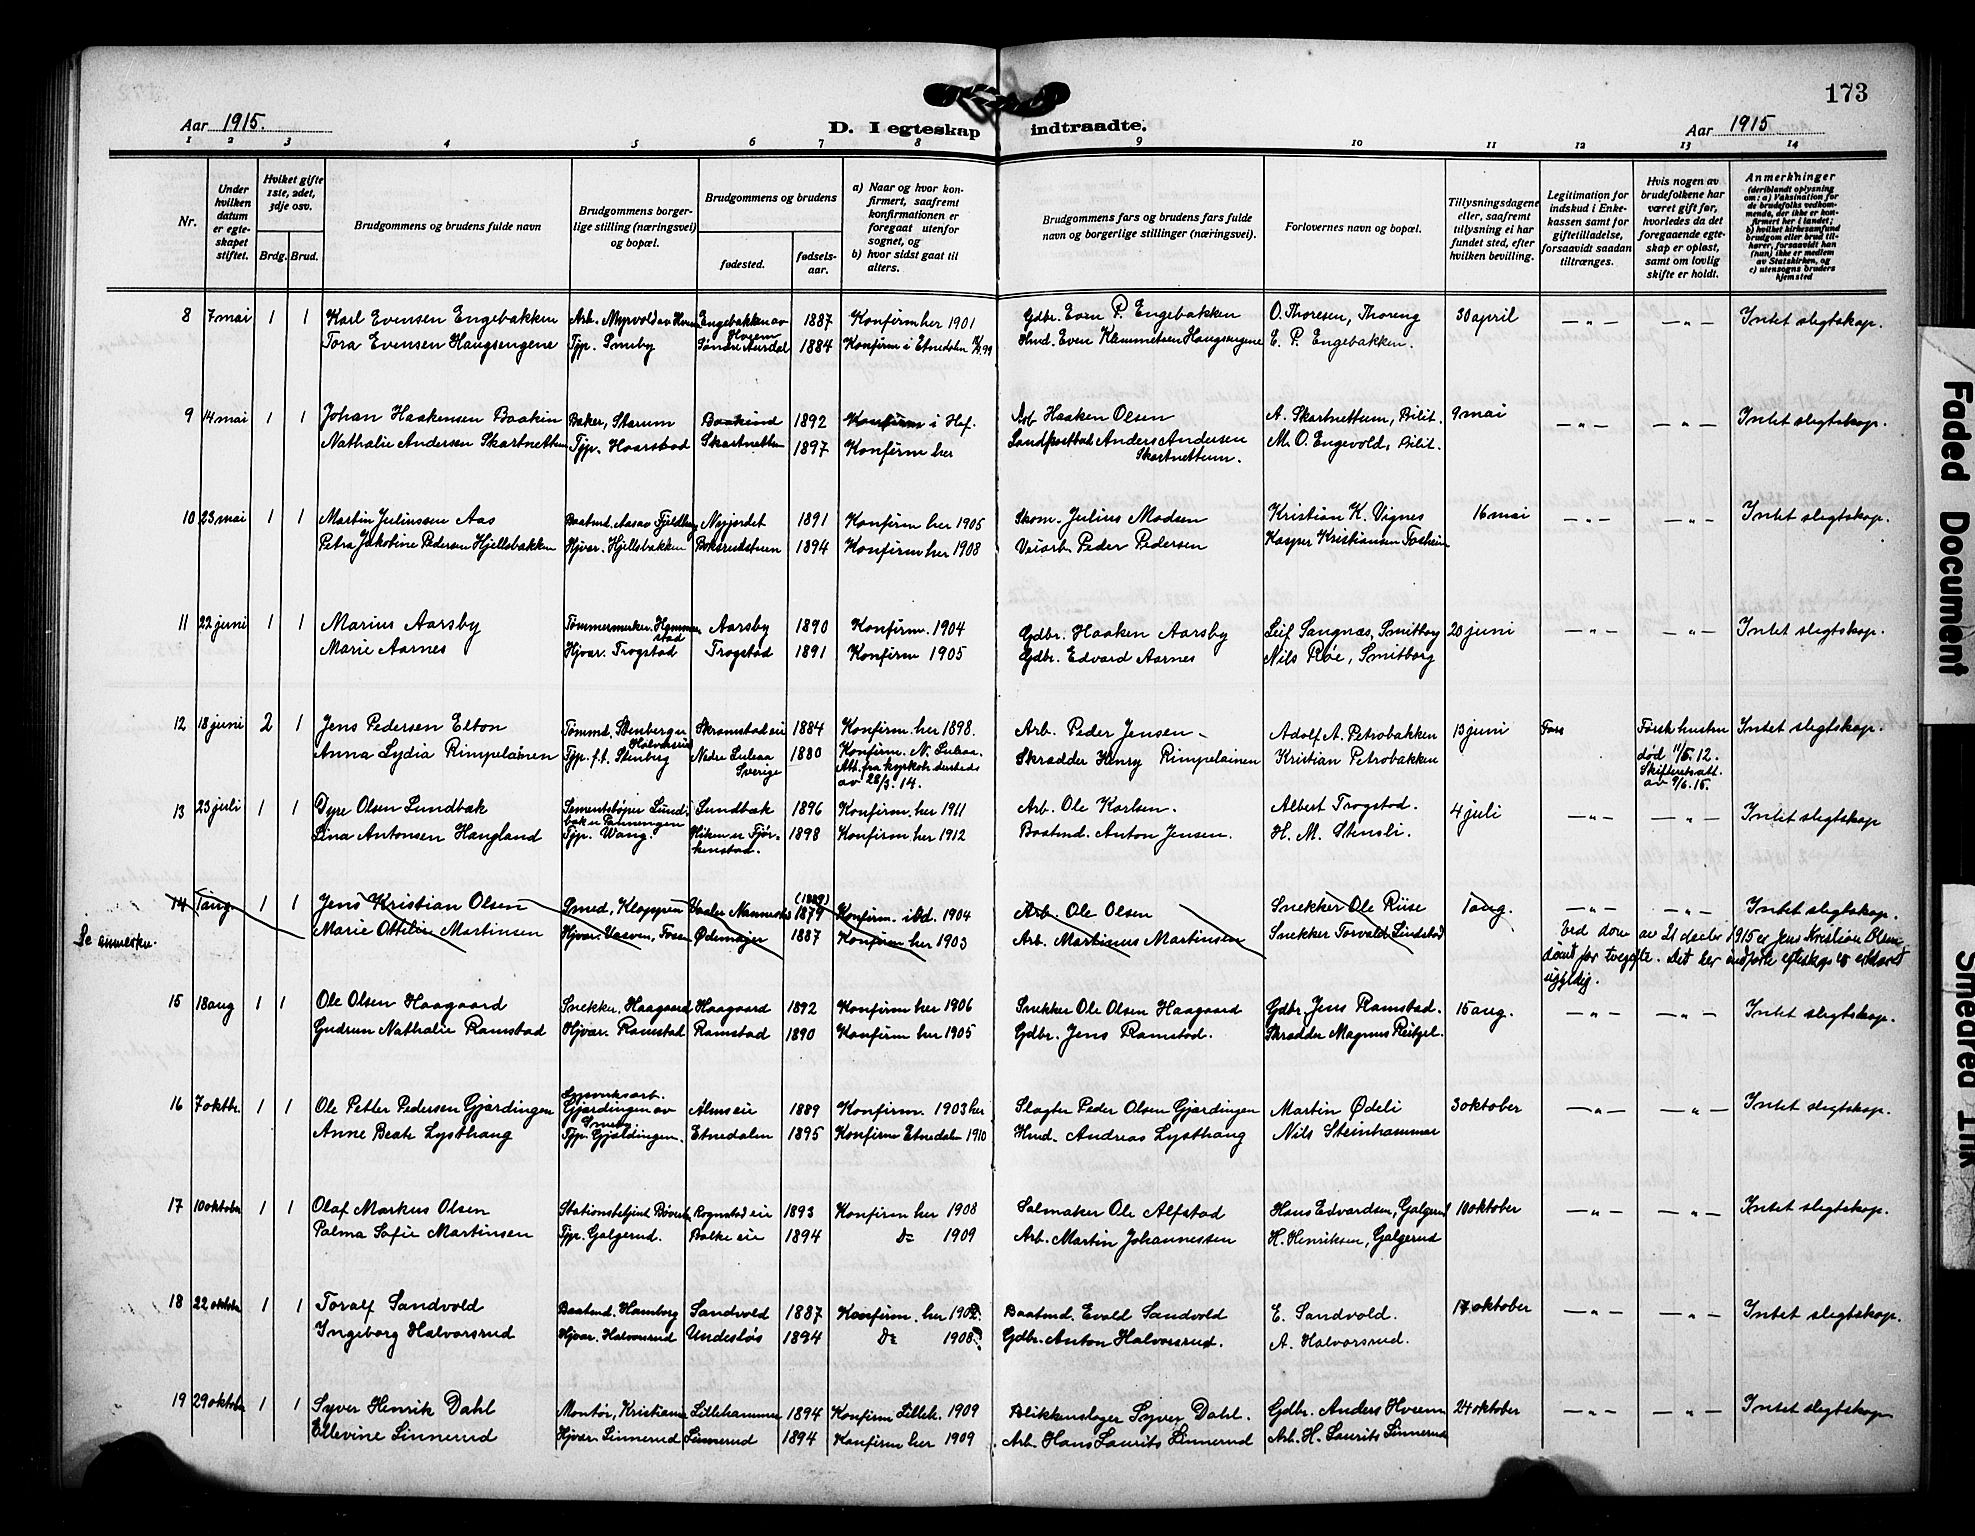 173
Aar 1915.
D. Iegteskap indtraadte.
Aar 1915
1 2 3 4 5 6 7 8 9 10 11 12 13 14
Nr.
Under hvilken datum er egte-skapet stiftet.
Hviket gifte 1ste, 2det, 3dje osv.
Brdg. Brud.
Brudgommens og brudens fulde navn
Brudgommens borger-lige stilling (næringsvei) og bopæl.
Brudgommens og brudens
fødested.
fødsels-aar.
a) Naar og hvor kon-firmert, saafremt konfirmationen er foregaat utenfor sognet, og
b) hvor sidst gaat til alters.
Brudgommens fars og brudens fars fulde navn og borgerlige stillinger (næringsvei).
Forlovernes navn og bopæl.
Tillysningsdagene eller, saafremt tillysning ei har fundet sted, efter hvilken bevilling.
Legitimation for indskud i Enke-kassen samt for giftetilladelse, forsaavidt saadan tiltrænges.
Hvis nogen av brudefolkene har været gift før, hvorledes da det foregaaende egte-skap er opløst, samt om lovlig skifte er holdt.
Anmerkninger (deriblandt oplysning om: a) Vaksination for de brudefolks vedkom-mende, der ikke er kon-firmert her i landet; b) hvilket kirkesamfund brudgom eller brud til-hører, forsaavidt han (hun) ikke er medlem av Statskirken, og c) utensogns bruders hjemsted
8 7 mai 1 1 Karl Evensen Engebakken Arb. Myrvold av Hveem Engebakken av Hveem 1887 Konfirm her 1901 Gdbr. Even P. Engebakken O. Thoresen, Thoreng 30 april — „ — — „ — Intet slegtskap.
Tora Evensen Haugsengene Tjp. Smeby Søndre Aurdal 1884 Konfirm i Etnedalen Hmd. Even Klemmetsen Haugsengene E. P. Engebakken.
9 14 mai 1 1 Johan Haakensen Baakin Baker, Starum 1892 Konfirm i Hof. Arb Haaken Olsen A. Skartnettum, Bilit. 9 mai — „ — — „ — Intet slegtskap.
Nathalie Andersen Skartnettum Tjp. Haarstad Skartnettum 1897 Konfirm her Landpostbud Anders Andersen Skartnettum. M. O. Engevold, Bilit.
10 23 mai 1 1 Martin Juliussen Aas Baatmd. Aas av Fjeldhaug Nyjordet 1891 Konfirm her 1905 Skom. Julius Madsen Kristian K. Vignes 16 mai — „ — — „ — Intet slegtskap.
Petra Jakobine Pedersen Hjellsbakken Hjvær. Hjellsbakken 1894 Konfirm her 1908 Veiarb. Peder Pedersen Kasper Kristiansen Tosheim
11 22 juni 1 1 Marius Aarsby Tømmermerker. Hammerstad Aarsby 1890 Konfirm. 1904 Gdbr. Haaken Aarsby Leif Sangnæs, Smitborg 20 juni — „ — — „ — Intet slegtskap.
Marie Aarnes Hjvær. Trogstad Trogstad 1891 Konfirm 1905 Gdbr. Edvard Aarnes Nils Røe, Smitborg
12 18 juni 2 1 Jens Pedersen Elton Tømmd. Stenberg av Halvorsrud Skramstad eie 1884 Konfirm. her 1898. Arb. Peder Jensen – Adolf A. Petrobakken 13 juni Fors Første hustru Intet slegtskap.
Anna Lydia Rimpelainen Tjp. f.t. Stenberg Nedre Luleaa Sverige 1880 Konfirm. N. Luleaa. Att. fra kyrkoh. dersteds av 28/3. 14. Skrædder Henry Rimpelainen Kristian Petrobakken død 11/5. 12. Skifteretsatt. av 9/6. 15.
13 23 juli 1 1 Tyre Olsen Lundbæk Sementstøper Lundbæk Sundbæk 1896 Konfirm. her 1911 Arb. Ole Karlsen. Albert Trogstad. 4 juli — „ — — „ — Intet slegtskap
Lina Antonsen Haugland Tjp. Wang. 1898 Konfirm her 1912 Baatmd. Anton Jensen. H. M. Stensli.
14 1 aug. 1 1 Jens Kristian Olsen Smed, Kloppen (1889) 1879 Konfirm. ibd. 1904 Arb. Ole Olsen Snekker Ole Riise 1 aug. — „ — — „ — Intet slegtskap.
Marie Ottilie Martinsen 1887 Konfirm her 1903 Arb. Martinus Martinsen Snekker Torvald Lindstad
Se anmerkn.
Ved dom av 21 decbr 1915 er Jens Kristian Olsen dømt for tvegifte. Det her indførte egteskap er erklæret ugyldig.
15 18 aug 1 1 Ole Olsen Haagaard Snekker. Haagaard Haagaard 1892 Konfirm her 1906 Snekker Ole Olsen Haagaard Gdbr. Jens Ramstad. 15 aug. — „ — — „ — Intet slegtskap.
Gudrun Nathalie Ramstad Hjvær. Ramstad Ramstad 1890 Konfirm her 1905 Gdbr. Jens Ramstad. Skrædder Magnus Reitzel.
16 7 oktbr. 1 1 Ole Petter Pedersen Gjærdingen Gjærdingen av Smeby Alms eie 1889 Konfirm. 1903 her Slagter Peder Olsen Gjærdingen Martin Ødeli 3 oktober — „ — — „ — Intet slegtskap.
Anne Beate Lysthaug Tjp. Gjærdingen. Etnedalen 1895 Konfirm Etnedalen 1910 Hmd. Andreas Lysthaug Nils Steinhammer
17 10 oktober 1 1 Olaf Markus Olsen Stationsbetjent Rognstad eie 1893 Konfirm her 1908 Salmaker Ole Alfstad Hans Edvardsen, Galgerud 10 oktober — „ — — „ — Intet slegtskap.
Palma Sofie Martinsen Tjp. Galgerud. Balke eie 1894 Do 1909 Arb. Martin Johannessen H. Henriksen, Galgerud
18 22 oktober 1 1 Toralf Sandvold Baatmd. Hamborg Sandvold 1887 Konfirm. her 1902. Baatmd. Evald Sandvold E. Sandvold. 17 oktober — „ — — „ — Intet slegtskap.
Ingeborg Halvorsrud Hjvær. Halvorsrud Undesløs 1894 Do 1908. Gdbr. Anton Halvorsrud. A. Halvorsrud.
19 29 oktober 1 1 Syver Henrik Dahl Montør, Kristiania Lillehammer 1894 Konfirm Lilleh. 1909 Blikkenslager Syver Dahl. Gdbr. Anders Hveem 24 oktober — „ — — „ — Intet slegtskap
Ellevine Linnerud Hjvær. Linnerud Linnerud 1894 Konfirm her 1909 Arb. Hans Laurits Linnerud Arb. H. Laurits Linnerud
Faded Document
Smeared Ink